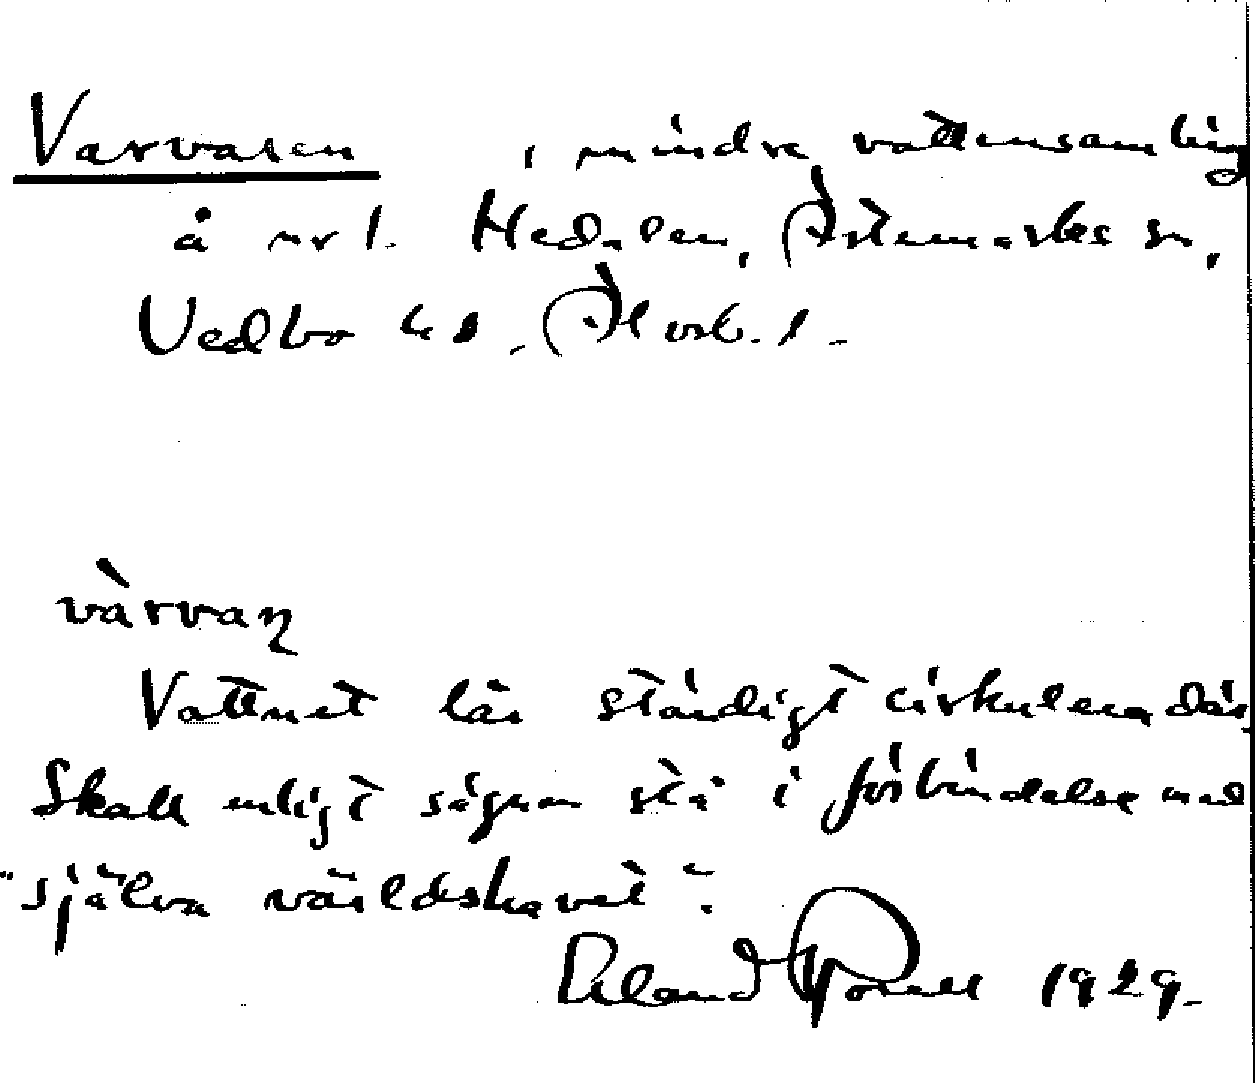 Varvasen, mindre vattensamling
å nr 1. Hedalen, Ärtemarks sn,
Vedbo hd, Älvsb. l.
vàrvaꞑ
Vattnet lär ständigt cirkulera där,
Skall enligt sägnen stå i förbindelse med
"själva världshavet".
Eland 1929.